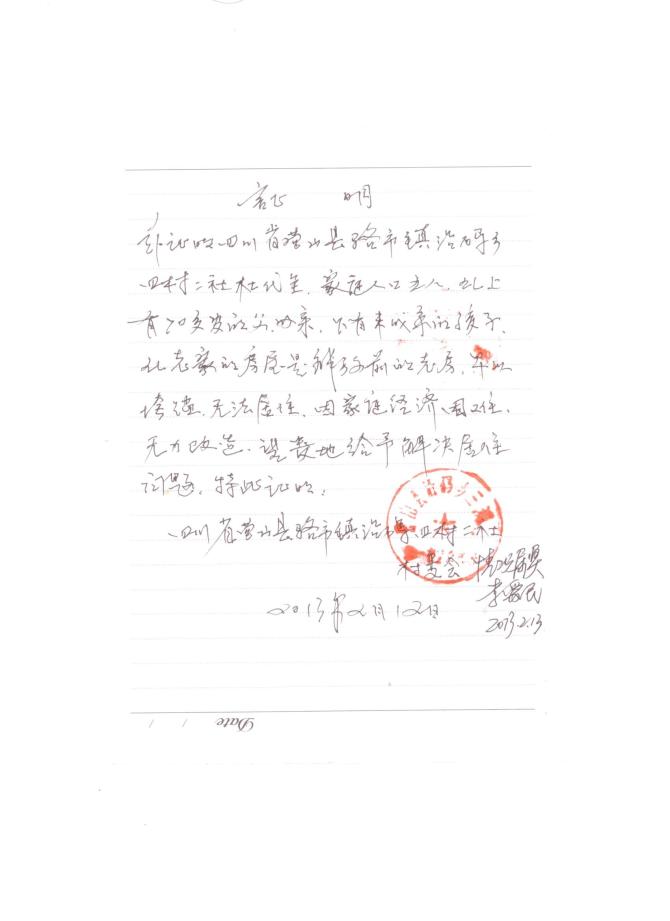 证 明
兹证明四川省营山县骆市镇沿码乡
四村二社杜代全,家庭人口五人,上
有70多岁的父母亲,下有未成系的孩子,
老家的房屋是解放前的老房,
垮塌,无法居住,因家庭经济困难,
无力改造,望贵地给予解决居住
问题,特此证明:
四川省营山县骆市镇沿码乡四村二社
村委会
2013年2月12日
2013.2.13
Date / /